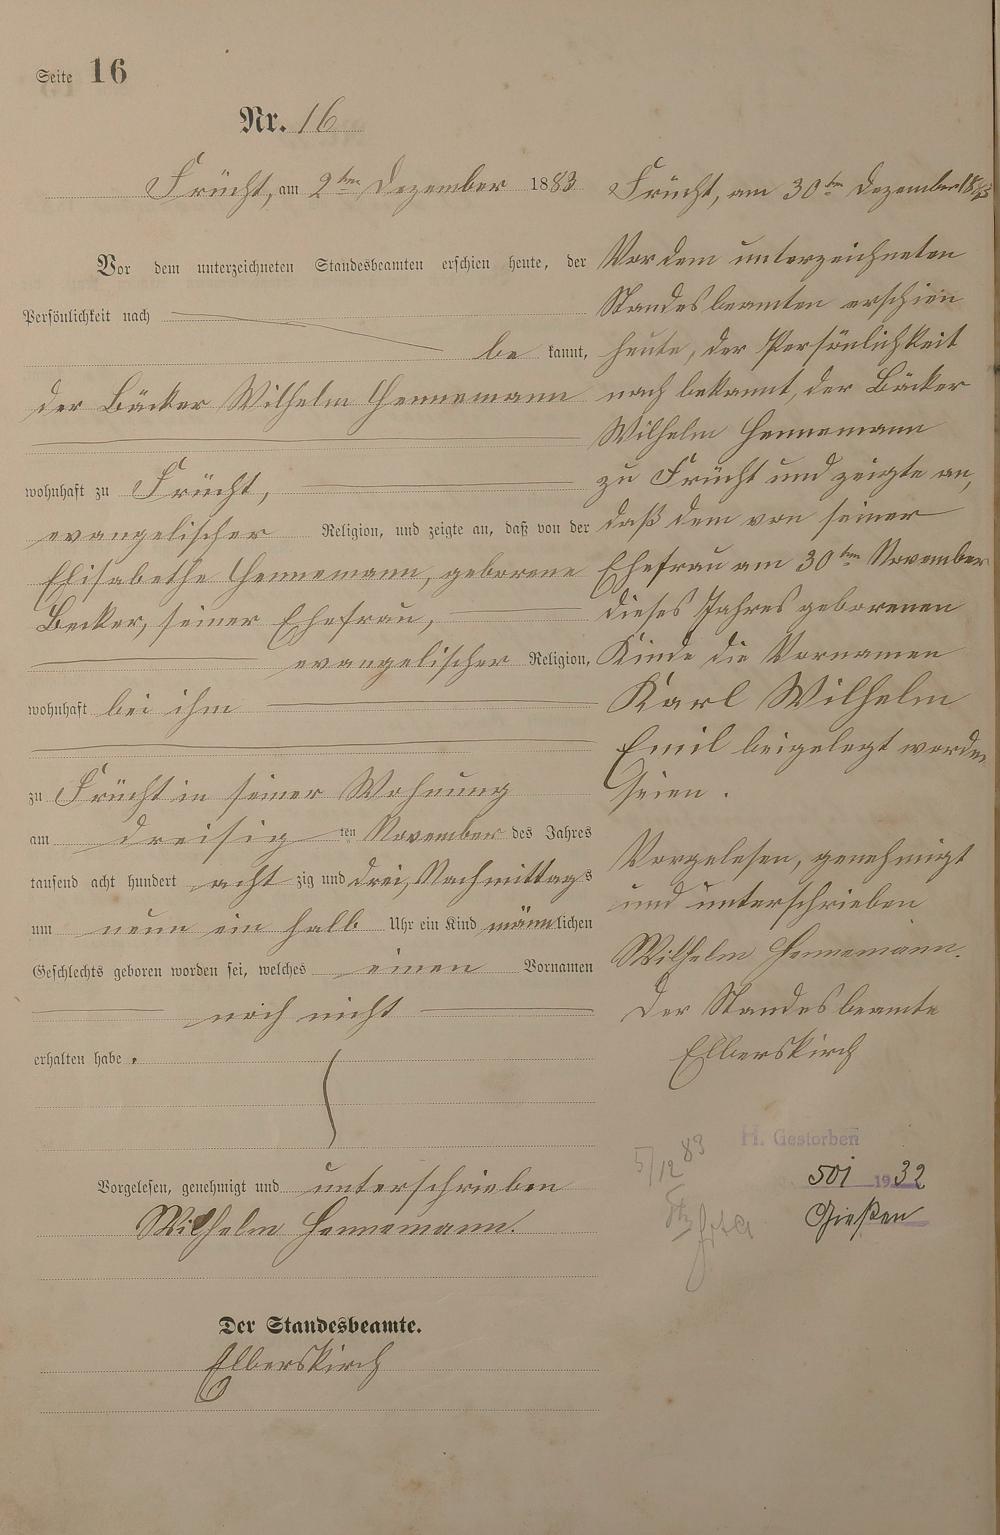 Seite 16
Nr. 16
Frücht, am 2ten Dezember 1883
Vor dem unterzeichneten Standesbeamten erschien heute, der
Persönlichkeit nach
be kannt,
der Bäcker Wilhelm Hennemann
wohnhaft zu Frücht,
evangelischer Religion, und zeigte an, daß von der
Elisabethe Hennemann, geborene
Becker, seiner Ehefrau,
evangelischer Religion,
wohnhaft bei ihm
zu Frücht in seiner Wohnung
am dreisig ten November des Jahres
tausend acht hundert acht zig und drei, Nachmittags
um neun ein halb Uhr ein Kind männlichen
Geschlechts geboren worden sei, welches einen Vornamen
noch nicht
erhalten habe.
Vorgelesen, genehmigt und unterschrieben
Wilhelm Hennemann.
Der Standesbeamte.
Elberskirch
Frücht, am 30ten Dezember 1883
Vor dem unterzeichneten
Standesbeamten erschien
heute, der Persönlichkeit
nach bekannt, der Bäcker
Wilhelm Hennemann
zu Frücht und zeigte an,
daß dem von seiner
Ehefrau am 30ten November
dieses Jahres geborenen
Kinde die Vornamen
Karl Wilhelm
Emil beigelegt worden
seien.
Vorgelesen, genehmigt
und unterschrieben
Wilhelm Hennemann.
Der Standesbeamte
Elberskirch
H. Gestorben
5/12 83
501 1932
Gießen